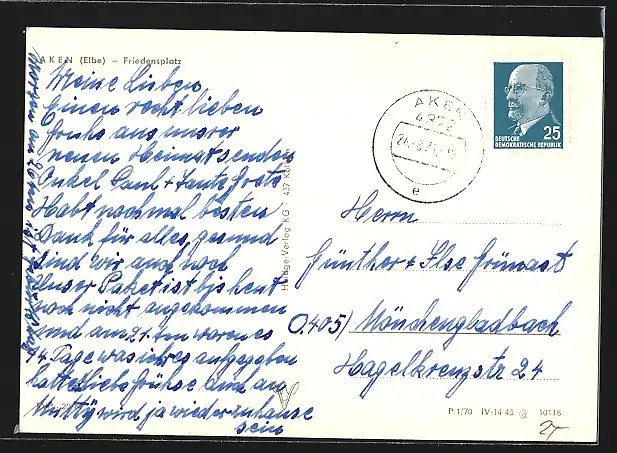 AKEN (Elbe) – Friedensplatz
Meine Lieben
Einen recht lieben
Gruhs aus unsrer
neuen Heimat senden
Onkel Paul + Tante Grete
Habt nochmal besten
Dank für alles, gesund
sind wir auch noch
unser Paket ist bis heut
noch nicht angekommen
und am 21. ten waren es
14. Tage was ich es aufgegeben
hatte liebe Grühse auch an
Mutty wird ja wieder zuhause
sein
Morgen am
AKEN
4372
24.-8.71
e
DEUTSCHE
DEMOKRATISCHE REPUBLIK
25
Verlag KG · 437
Herrn
Günther + Ilse Grünast
0.405) Mönchengladbach
Hagelkreuzstr 24
P 1/70 IV-14-45 10118